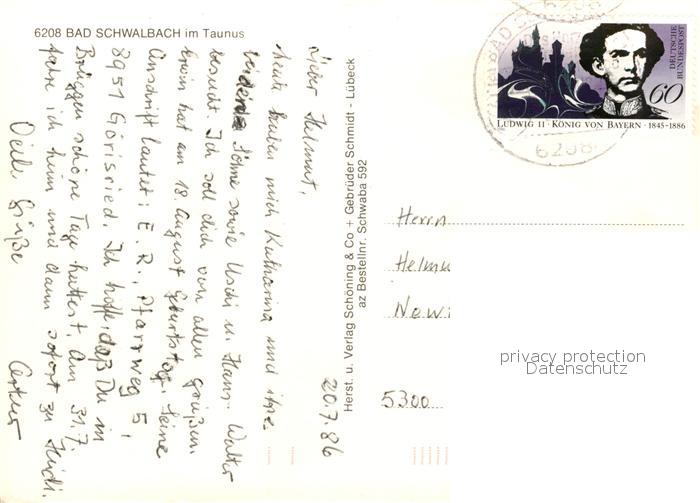 6208 BAD SCHWALBACH im Taunus
20.7.86
Lieber Helmut,
heute haben mich Katharina und ihre
beiden Söhne sowie Uschi u. Hans-Walter
besucht. Ich soll dich von allen grüßen.
Erwin hat am 18. August Geburtstag. Seine
Anschrift lautet: E. R., Pfarrweg 5,
8951 Görisried. Ich hoffe, daß Du in
Brüggen schöne Tage hattest. Am 31.7.
fahre ich heim und dann sofort zu Heidi.
Viele Grüße
Arthur
Herst. u. Verlag Schöning & Co + Gebrüder Schmidt - Lübeck
az Bestellnr. Schwaba 592
DEUTSCHE
BUNDESPOST
60
LUDWIG II · KÖNIG VON BAYERN · 1845-1886
6208
BAD
6208
Herrn
Helmu
Newi
5300
privacy protection
Datenschutz